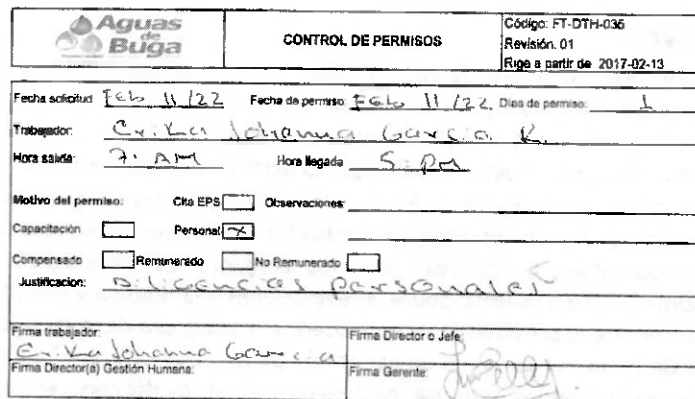 Aguas
de
Buga
CONTROL DE PERMISOS
Código: FT-DTH-035
Revisión. 01
Rige a partir de 2017-02-13
Fecha solicitud Feb 11/22 Fecha de permiso: Feb 11/22 Dias de permiso: 1
Trabajador: Erika Johanna Garcia R.
Hora salida: 7. AM Hora llegada 5. pm
Motivo del permiso: Cita EPS Observaciones:
Capacitación Personal X
Compensado Remunerado No Remunerado
Justificacion: Diligencias personales
Firma trabajador: Firma Director o Jefe:
Erika Johanna Garcia
Firma Director(a) Gestión Humana: Firma Gerente: